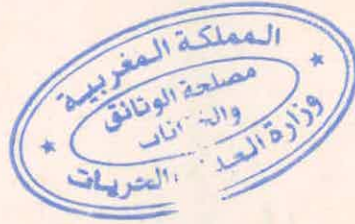 المملكة المغربية
مصلحة الوثائق
وزارة العدل والحريات